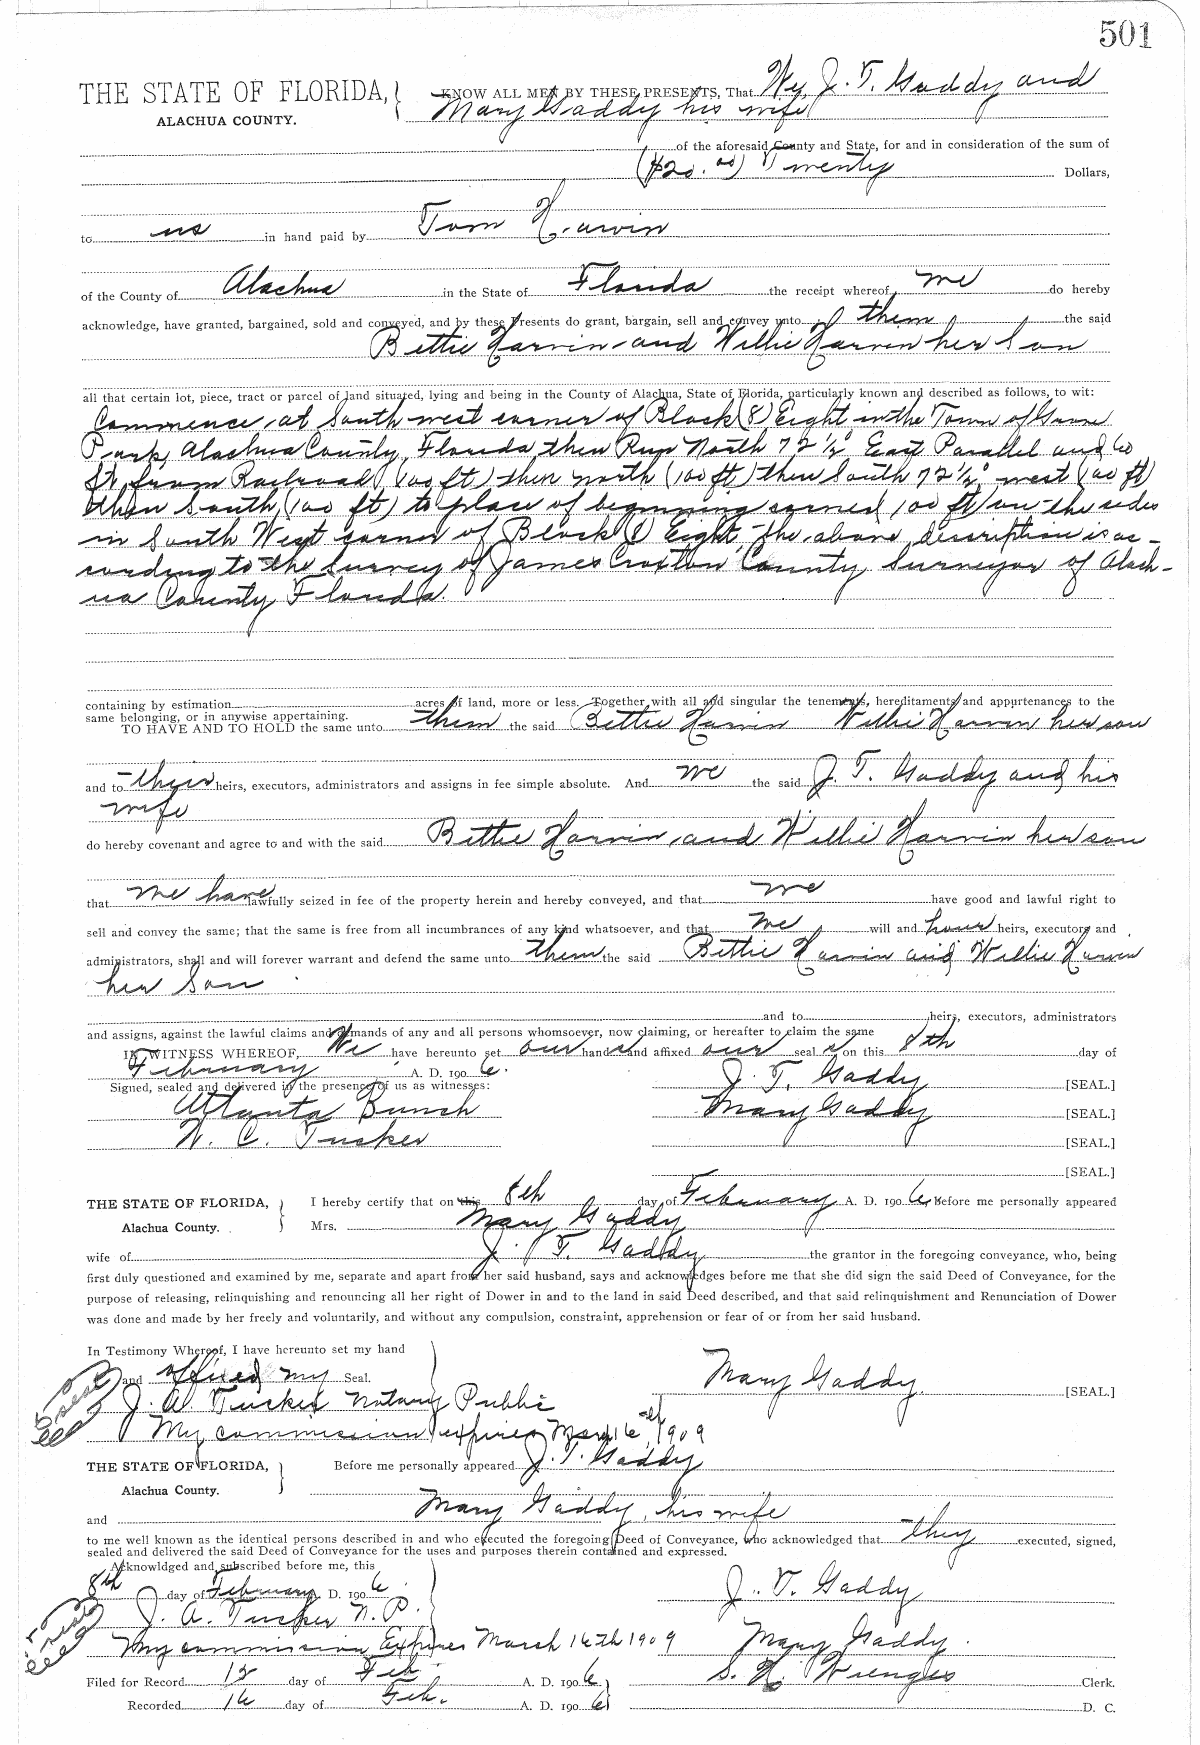 501
THE STATE OF FLORIDA, KNOW ALL MEN BY THESE PRESENTS, That We, J. T. Gaddy and
ALACHUA COUNTY. Mary Gaddy his wife
of the aforesaid County and State, for and in consideration of the sum of
($20.00) Twenty Dollars,
to us in hand paid by Tom Harvin
of the County of Alachua in the State of Florida the receipt whereof we do hereby
acknowledge, have granted, bargained, sold and conveyed, and by these Presents do grant, bargain, sell and convey unto them the said
Bettie Harvin and Willie Harvin her Son
all that certain lot, piece, tract or parcel of land situated, lying and being in the County of Alachua, State of Florida, particularly known and described as follows, to wit:
Commence at South west corner of Block (8) Eight in the Town of
Park, Alachua County, Florida, then Run North 72 1/2° East Parallel and 60
ft from Railroad (100 ft) then north (100 ft) then South 72 1/2° west (100 ft)
then South (100 ft) to place of beginning 100 ft on the sides
in South West corner of Block (8) Eight, the above description is ac-
cording to the Survey of James Croxton County Surveyor of Alach-
ua County Florida.
containing by estimation acres of land, more or less. Together with all and singular the tenements, hereditaments and appurtenances to the
same belonging, or in anywise appertaining.
TO HAVE AND TO HOLD the same unto them the said Bettie Harvin Willie Harvin her son
and to their heirs, executors, administrators and assigns in fee simple absolute. And we the said J. T. Gaddy and his
wife
do hereby covenant and agree to and with the said Bettie Harvin and Willie Harvin her son
that we have lawfully seized in fee of the property herein and hereby conveyed, and that we have good and lawful right to
sell and convey the same; that the same is free from all incumbrances of any kind whatsoever, and that we will and heirs, executors and
administrators, shall and will forever warrant and defend the same unto them the said Bettie Harvin and Willie Harvin
her Son
and to heirs, executors, administrators
and assigns, against the lawful claims and demands of any and all persons whomsoever, now claiming, or hereafter to claim the same
IN WITNESS WHEREOF, We have hereunto set our hands and affixed our seals on this 8th day of
February A. D. 1906.
Signed, sealed and delivered in the presence of us as witnesses: J. T. Gaddy [SEAL.]
Atlanta Bunch Mary Gaddy [SEAL.]
N. C. Tucker [SEAL.]
[SEAL.]
THE STATE OF FLORIDA, I hereby certify that on this 8th day of February A. D. 1906, Before me personally appeared
Alachua County. Mrs. Mary Gaddy
wife of J. T. Gaddy the grantor in the foregoing conveyance, who, being
first duly questioned and examined by me, separate and apart from her said husband, says and acknowledges before me that she did sign the said Deed of Conveyance, for the
purpose of releasing, relinquishing and renouncing all her right of Dower in and to the land in said Deed described, and that said relinquishment and Renunciation of Dower
was done and made by her freely and voluntarily, and without any compulsion, constraint, apprehension or fear of or from her said husband.
In Testimony Whereof, I have hereunto set my hand
and affixed my Seal. Mary Gaddy [SEAL.]
J. A. Tucker Notary Public
My commission expires Mar 16th, 1909
THE STATE OF FLORIDA, Before me personally appeared J. T. Gaddy
Alachua County.
and Mary Gaddy, his wife
to me well known as the identical persons described in and who executed the foregoing Deed of Conveyance, who acknowledged that they executed, signed,
sealed and delivered the said Deed of Conveyance for the uses and purposes therein contained and expressed.
Acknowldged and subscribed before me, this
8th day of February A. D. 1906 J. T. Gaddy
J. A. Tucker N. P.
My commission Expires March 16th 1909 Mary Gaddy.
Filed for Record 15 day of Feb A. D. 1906 S. H. Wienges Clerk.
Recorded 16 day of Feb. A. D. 1906 D. C.